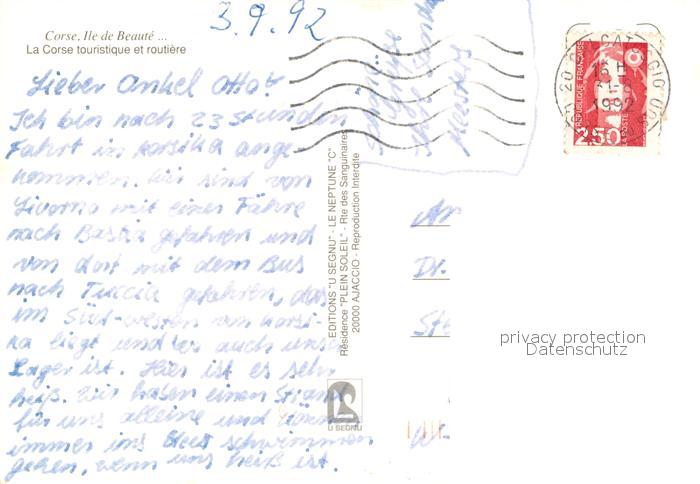 3.9.92
Corse, Ile de Beauté ...
La Corse touristique et routière
Lieber Onkel Otto
Ich bin nach 23 Stunden
Fahrt in Korsika ange-
kommen. Wir sind von
Livorno mit einer Fähre
nach Bastia gefahren und
von dort mit dem Bus
nach Tuccia gefahren, das
im Süd-westen von Korsi-
ka liegt und wo auch unser
Lager ist. Hier ist es sehr
heiß. Wir haben einen Strand
für uns alleine und können
immer ins Meer schwimmen
gehen, wenn uns heiß ist.
EDITIONS "U SEGNU" - LE NEPTUNE "C"
Résidence "PLEIN SOLEIL" - Rte des Sanguinaires
20000 AJACCIO - Reproduction Interdite
U SEGNU
Dr.
REPUBLIQUE FRANÇAISE
LA POSTE
2,50
1992
privacy protection
Datenschutz